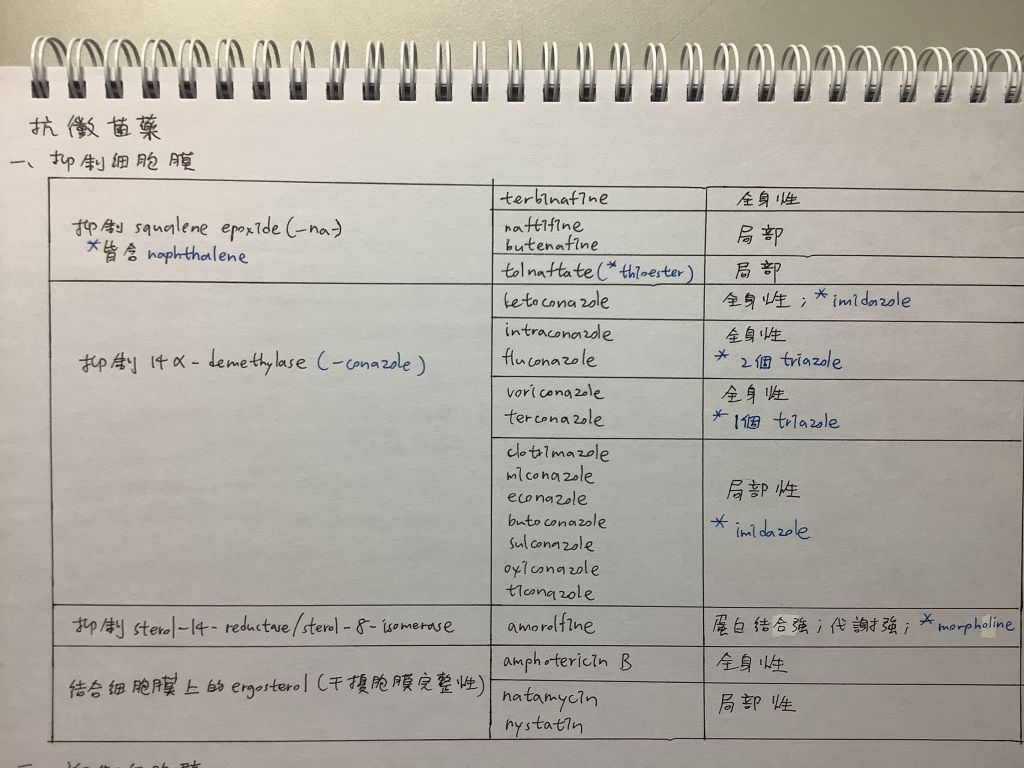 抗黴菌藥
一、抑制細胞膜
抑制 squalene epoxide (-na-)
*皆含 naphthalene
terbinafine 全身性
naftifine
butenafine
局部
tolnaftate (*thioester) 局部
抑制 14α-demethylase (-conazole)
ketoconazole 全身性；*imidazole
intraconazole
fluconazole
全身性
*2個 triazole
voriconazole
terconazole
全身性
*1個 triazole
clotrimazole
miconazole
econazole
butoconazole
sulconazole
oxiconazole
ticonazole
局部性
*imidazole
抑制 sterol-14-reductase/sterol-8-isomerase
amorolfine 蛋白結合強；代謝強；*morpholine
結合細胞膜上的 ergosterol (干擾胞膜完整性)
amphotericin B 全身性
natamycin
nystatin
局部性